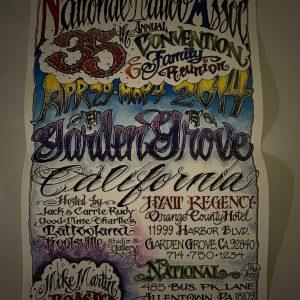 National Tattoo Assoc.
35th Annual
Convention
& Family
Reunion
Apr 29 - May 4 2014
Garden Grove
California
Hosted by Hyatt Regency
Jack & Carrie Rudy Orange County Hotel
Good Time Charlie's 11999 Harbor Blvd.
Tattooland Garden Grove CA 92840
Studio & Gallery 714-750-1234
Mike Martin National
485 Bus. Pk. Lane
Roasted Allentown PA 18109